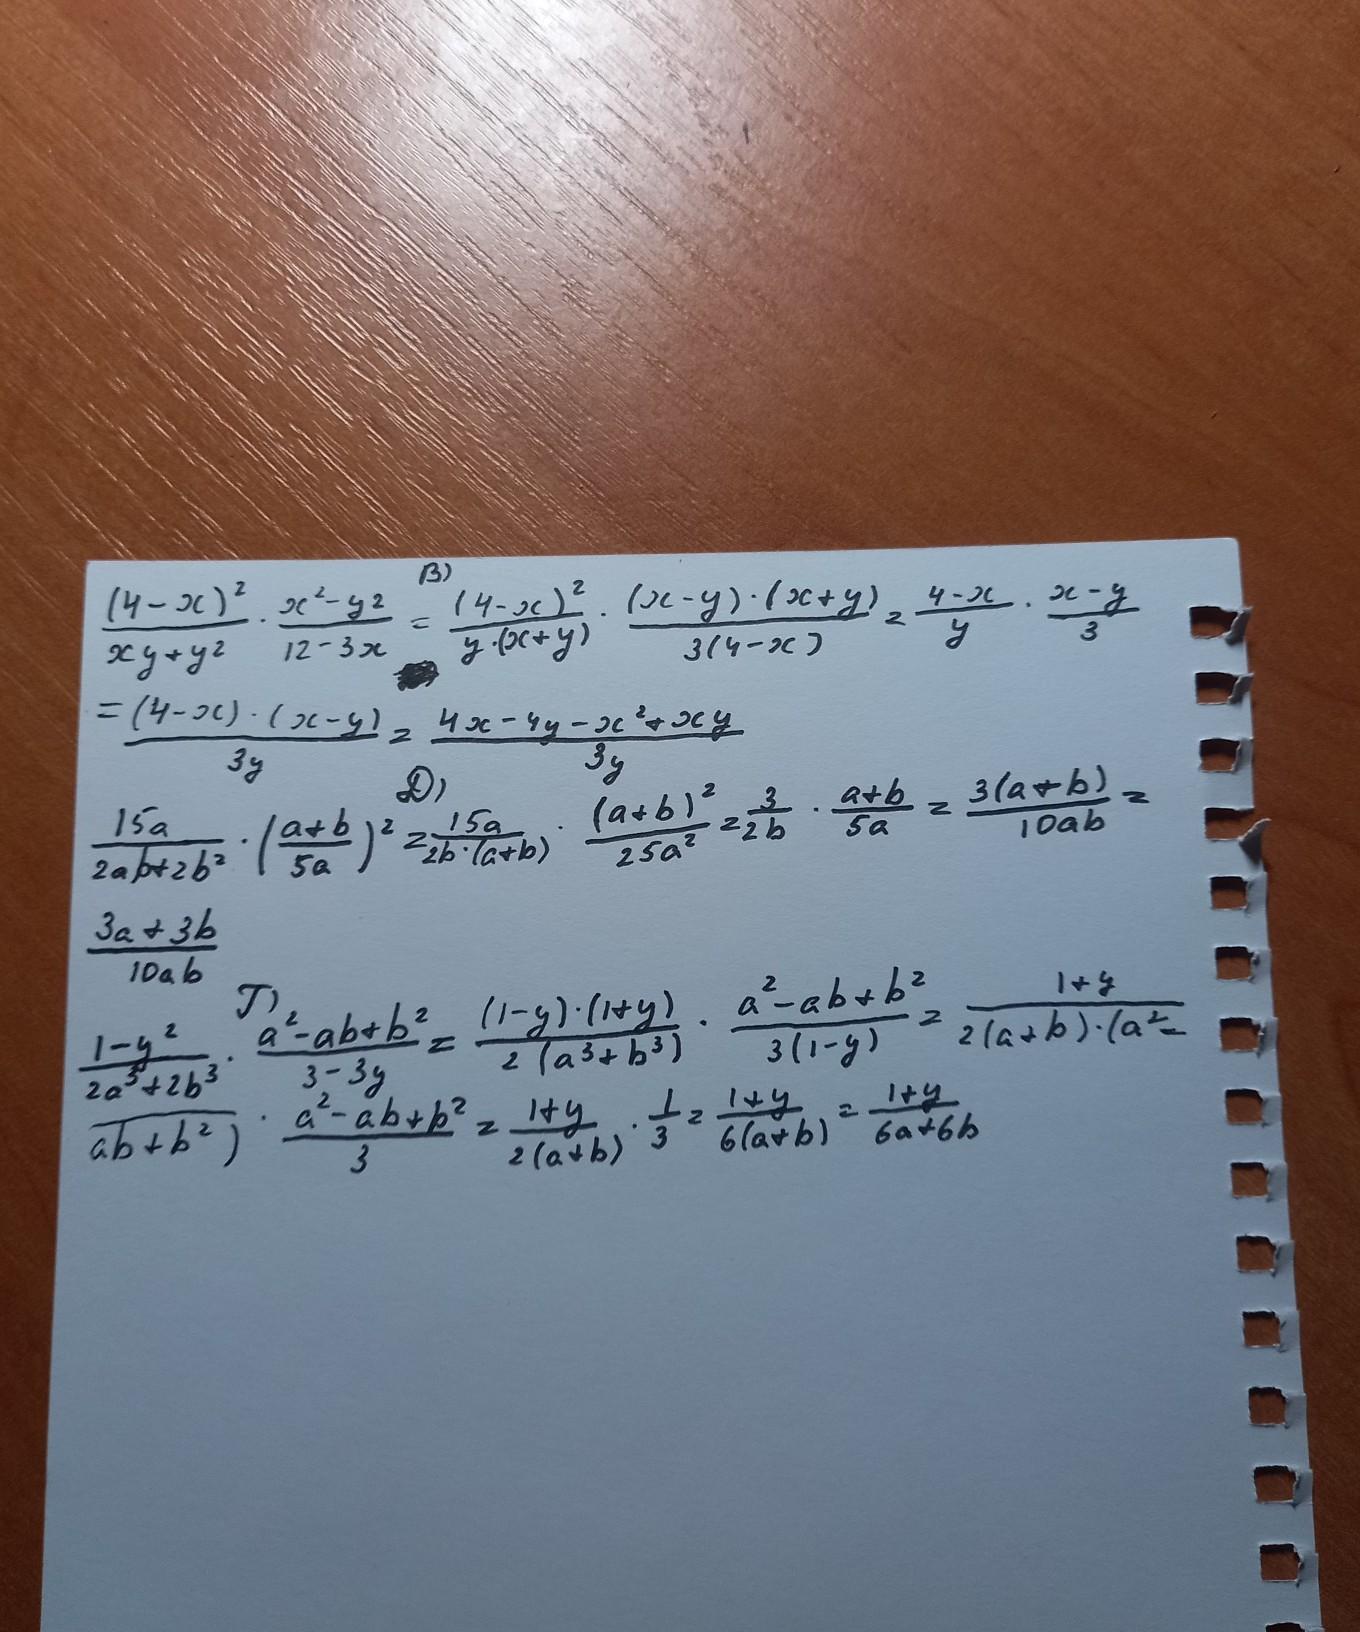 В)
(4-x)²/(xy+y²) · (x²-y²)/(12-3x) = (4-x)²/(y·(x+y)) · ((x-y)·(x+y))/(3(4-x)) = (4-x)/y · (x-y)/3
= ((4-x)·(x-y))/(3y) = (4x-4y-x²+xy)/(3y)
Д)
15a/(2ab+2b²) · ((a+b)/(5a))² = 15a/(2b·(a+b)) · (a+b)²/(25a²) = 3/(2b) · (a+b)/(5a) = 3(a+b)/(10ab) =
(3a+3b)/(10ab)
Г)
(1-y²)/(2a³+2b³) · (a²-ab+b²)/(3-3y) = ((1-y)·(1+y))/(2(a³+b³)) · (a²-ab+b²)/(3(1-y)) = (1+y)/(2(a+b)·(a²-
ab+b²)) · (a²-ab+b²)/3 = (1+y)/(2(a+b)) · 1/3 = (1+y)/(6(a+b)) = (1+y)/(6a+6b)